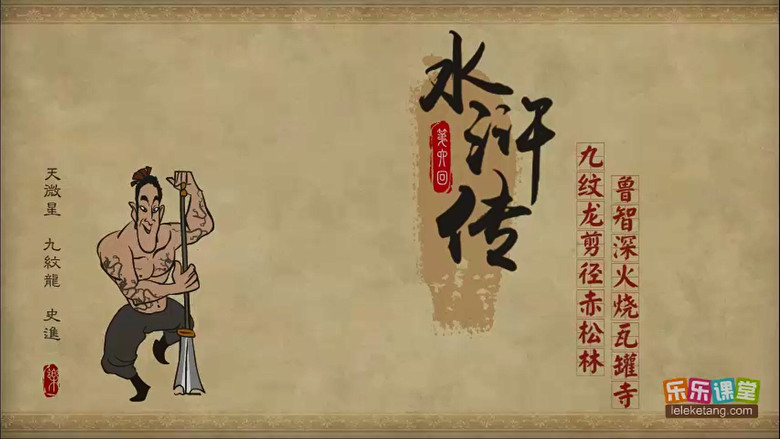 水浒传
第六回
九纹龙剪径赤松林
鲁智深火烧瓦罐寺
天微星 九紋龍 史進
乐乐课堂
leleketang.com